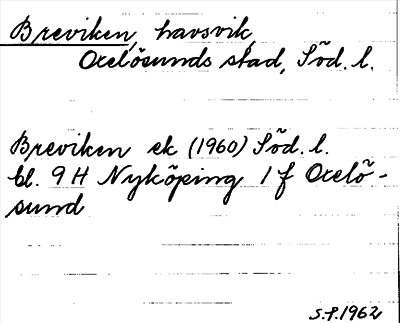 Breviken, havsvik,
Oxelösunds stad, Söd. l.
Breviken ek (1960) Söd. l.
bl. 9 H Nyköping 1 f Oxelö-
sund
S.P. 1962